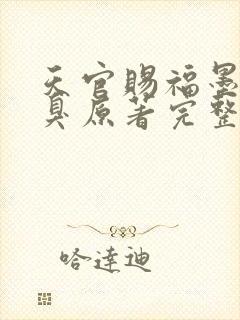 天官赐福墨
臭原著完整
哈達迪